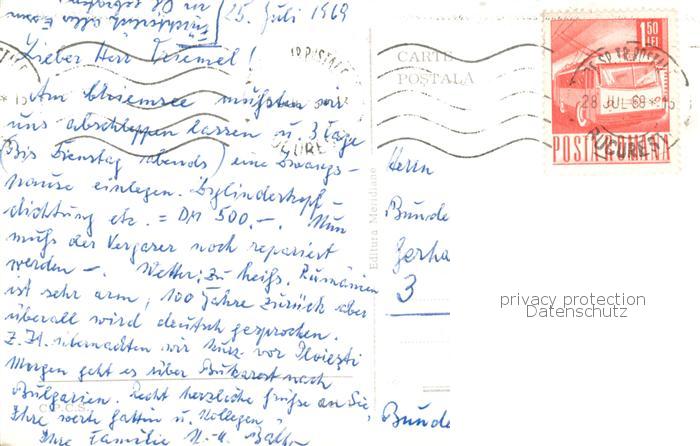 25. Juli 1969
Lieber Herr
Am Chiemsee mußten wir
uns abschleppen lassen u. 3 Tage
(Bis Dienstag abends) eine Zwangs-
pause einlegen. Zylinderkopf-
dichtung etc. = DM 500.-. Nun
muß der Vergaser noch repariert
werden -. Wetter: zu heiß. Rumänien
ist sehr arm, 100 Jahre zurück aber
überall wird deutsch gesprochen.
Z. Zt. übernachten wir kurz vor Ploiești
Morgen geht es über Bukarest nach
Bulgarien. Recht herzliche Grüße an Sie,
Ihre werte Gattin u. Kollegen
Ihre Familie
C.P.C.S.
Editura Meridiane
CARTE
POȘTALĂ
1,50
LEI
POSTA ROMANA
28 JUL 69
BUCUREȘTI
Herrn
Bunde
Gerha
3
Bunde
privacy protection
Datenschutz